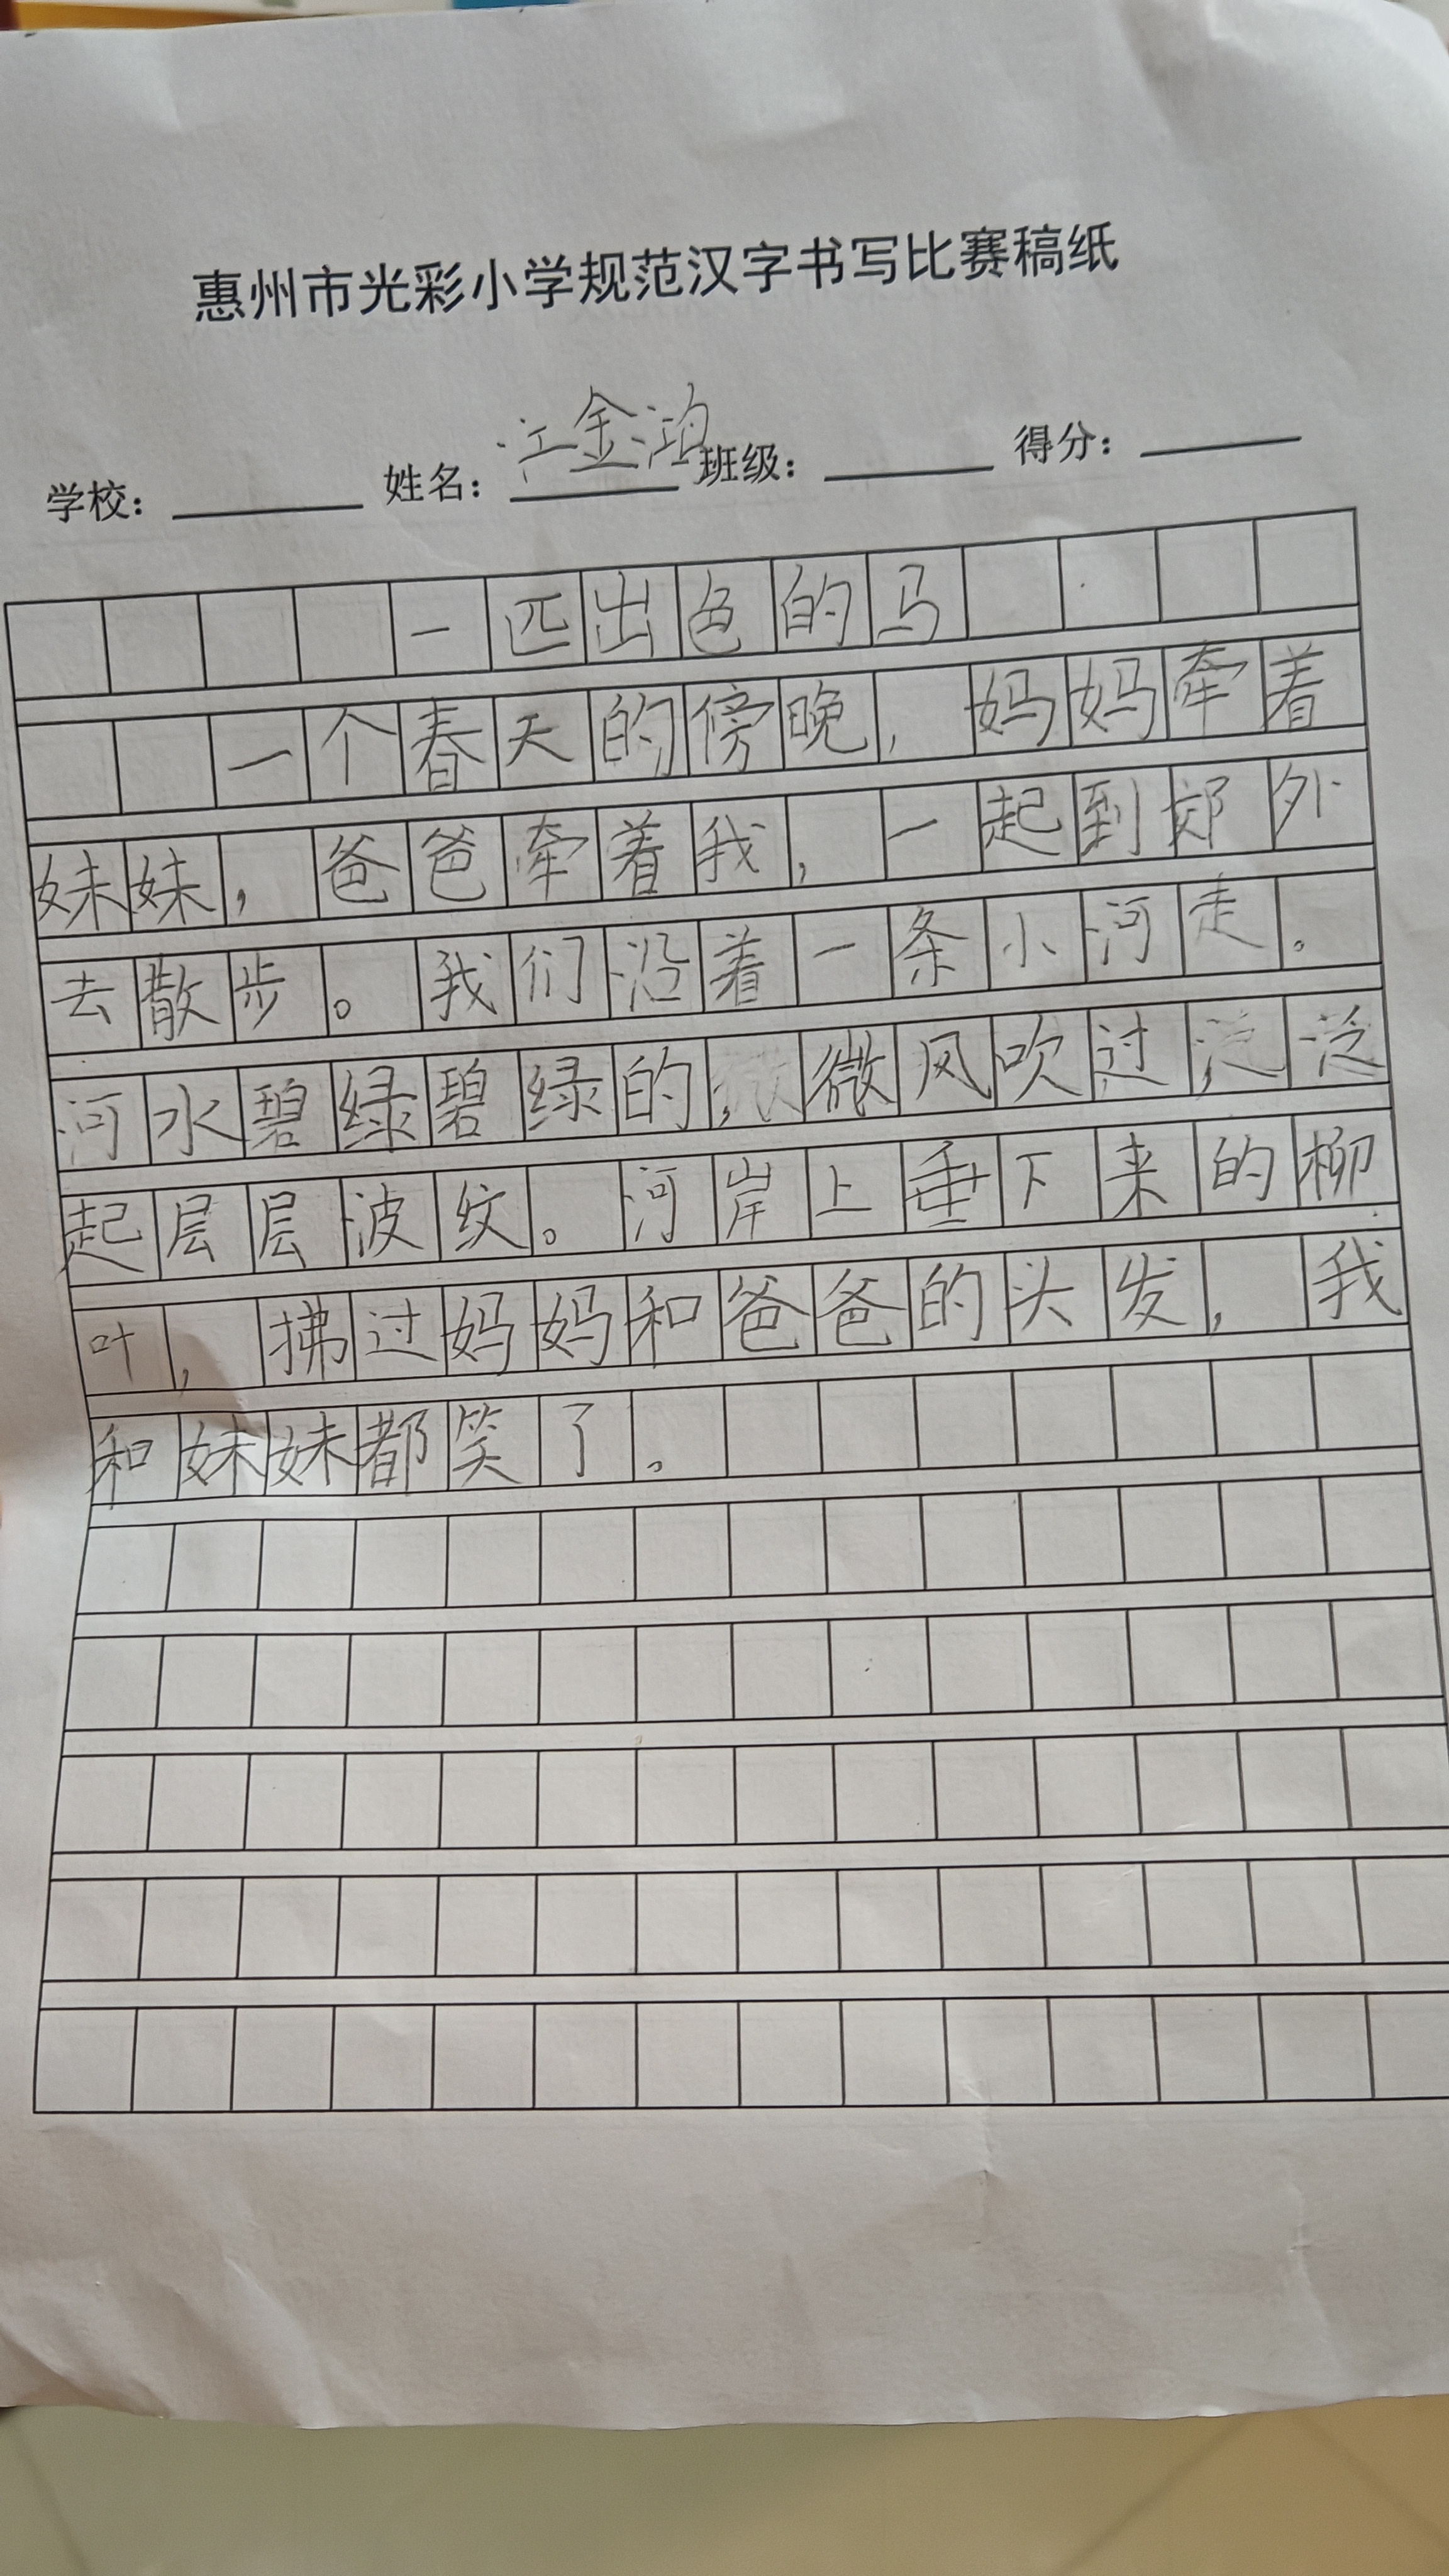 惠州市光彩小学规范汉字书写比赛稿纸
学校： 姓名：江金泊 班级： 得分：
一匹出色的马
一个春天的傍晚，妈妈牵着
妹妹，爸爸牵着我，一起到郊外
去散步。我们沿着一条小河走。
河水碧绿碧绿的，微风吹过，泛
起层层波纹。河岸上垂下来的柳
叶，拂过妈妈和爸爸的头发，我
和妹妹都笑了。